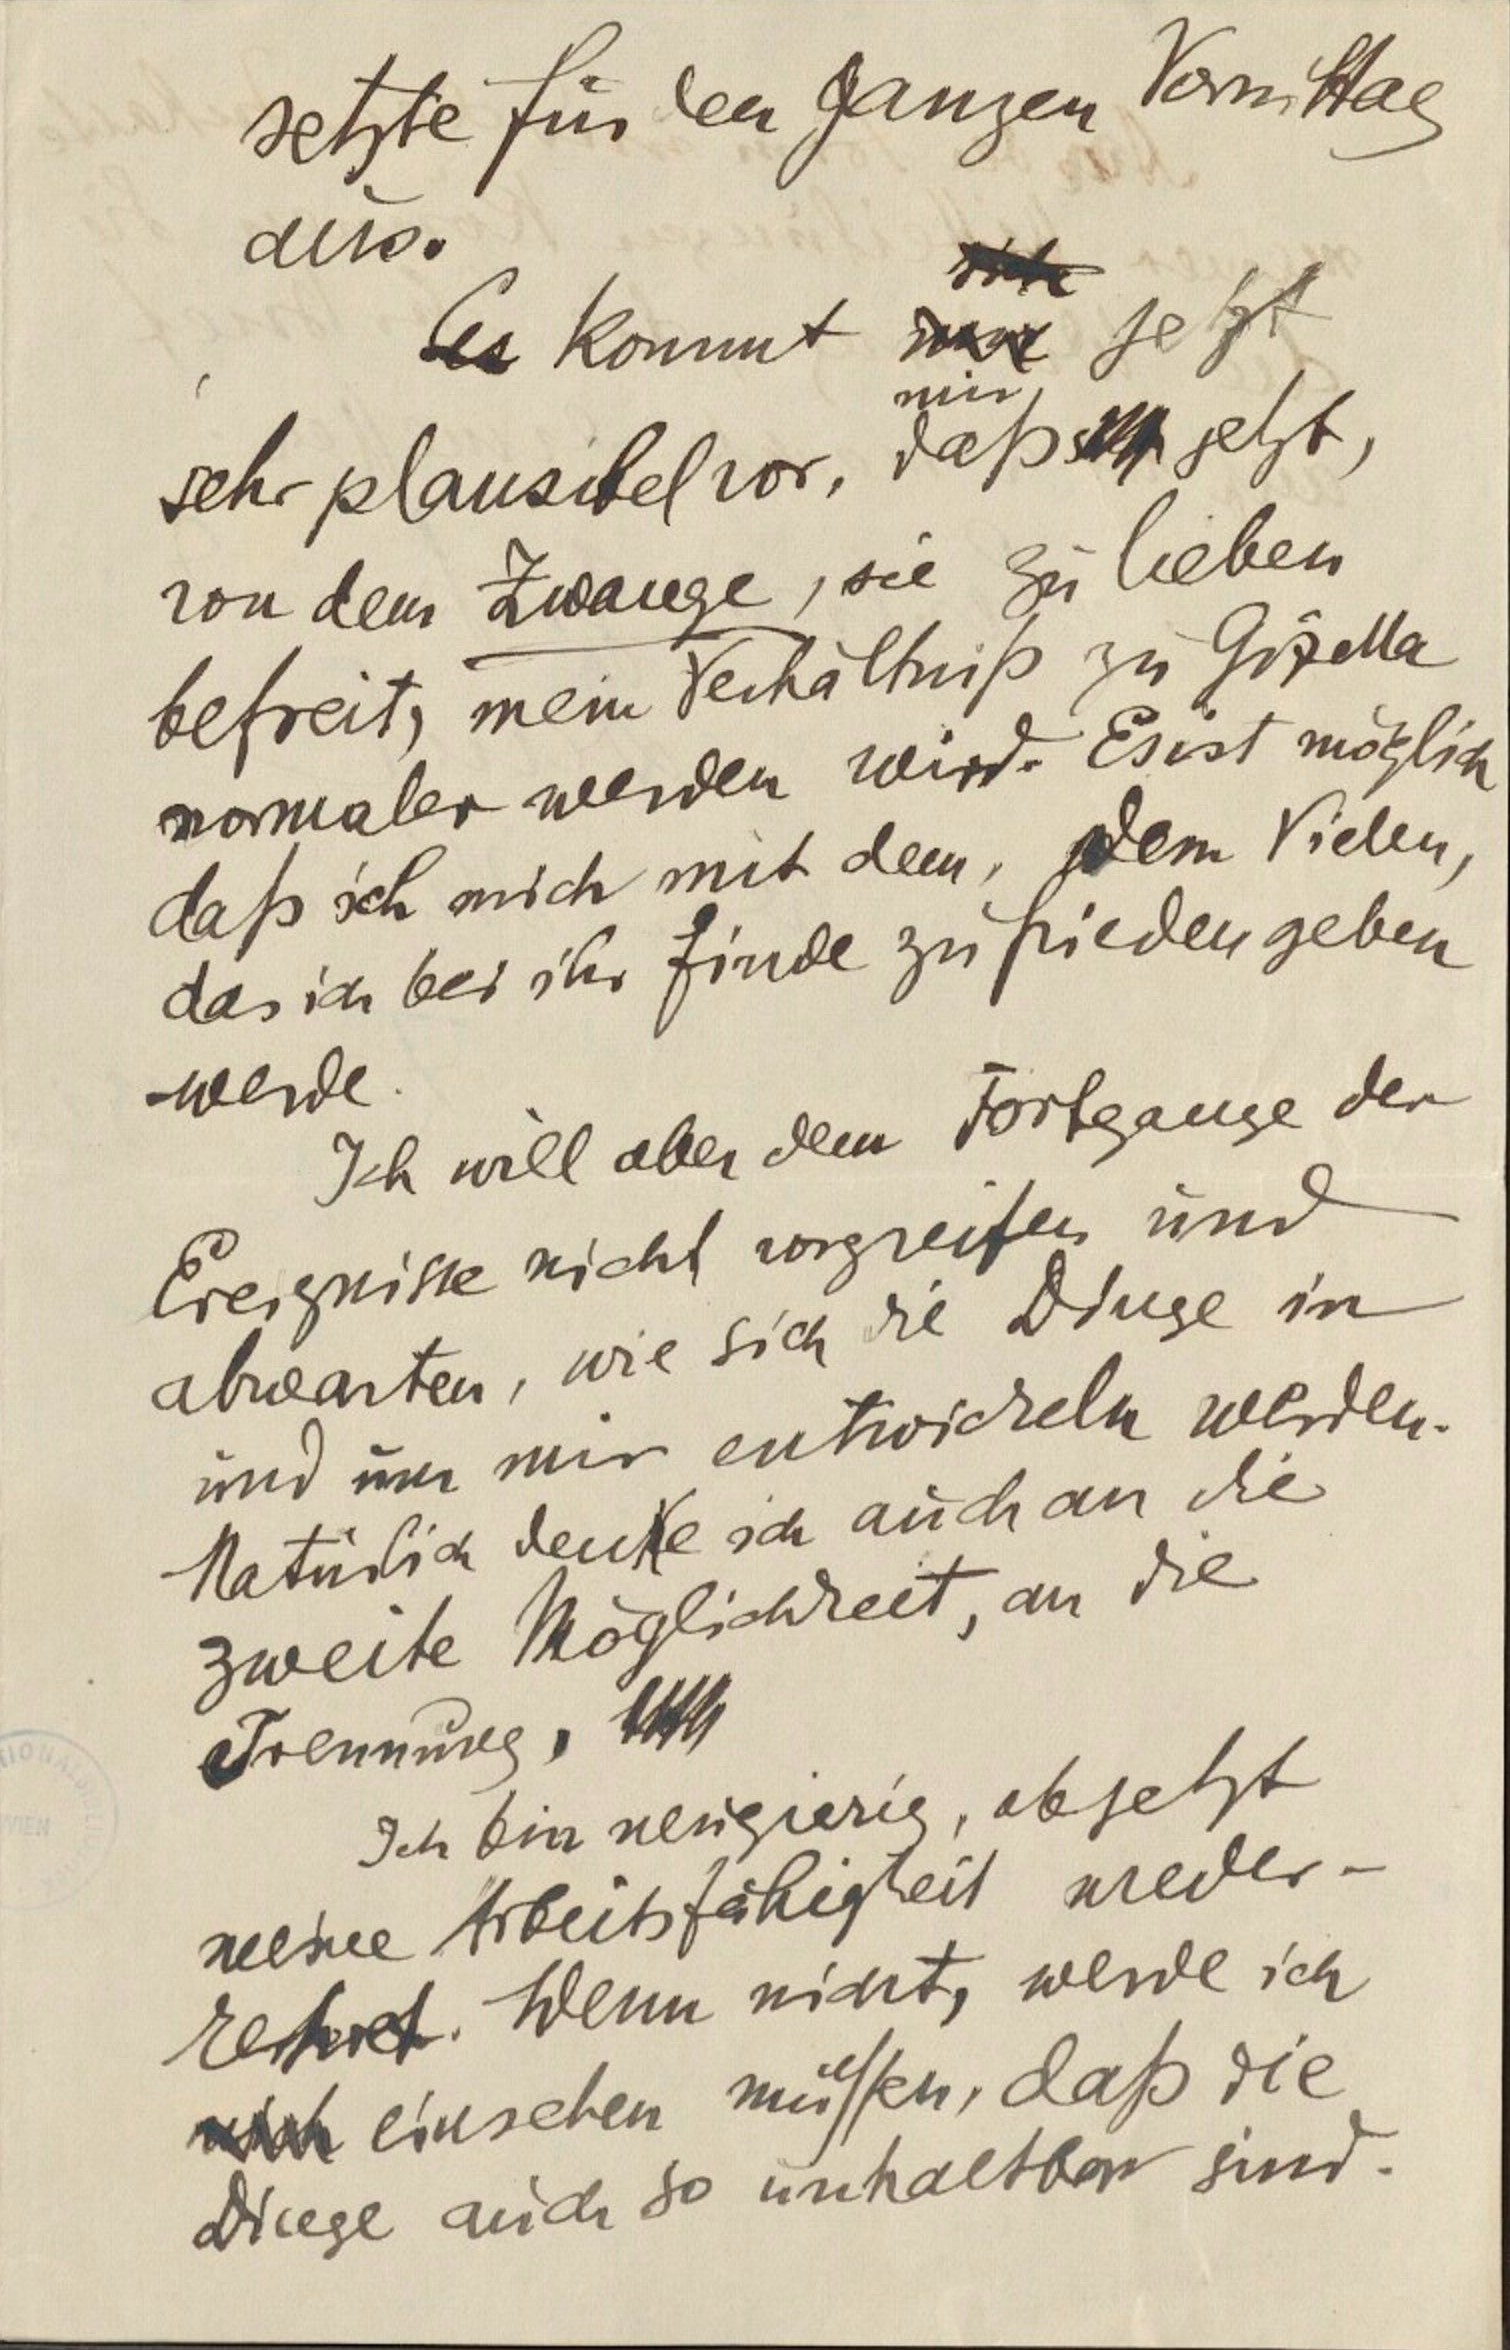 setzte für den ganzen Vormittag
aus.
Es kommt jetzt
mir
sehr plausibel vor, daß jetzt,
von dem Zwange, sie zu lieben
befreit, mein Verhältniß zu Gizella
normaler werden wird. Es ist möglich
daß ich mich mit dem, dem Vielen,
das ich bei ihr finde zufrieden geben
werde.
Ich will aber dem Fortgange der
Ereignisse nicht vorgreifen und
abwarten, wie sich die Dinge in
und um mir entwickeln werden.
Natürlich denke ich auch an die
zweite Möglichkeit, an die
Trennung.
Ich bin neugierig, ob jetzt
meine Arbeitsfähigkeit wieder-
kehrt. Wenn nicht, werde ich
einsehen müssen, daß die
Dinge auch so unhaltbar sind.